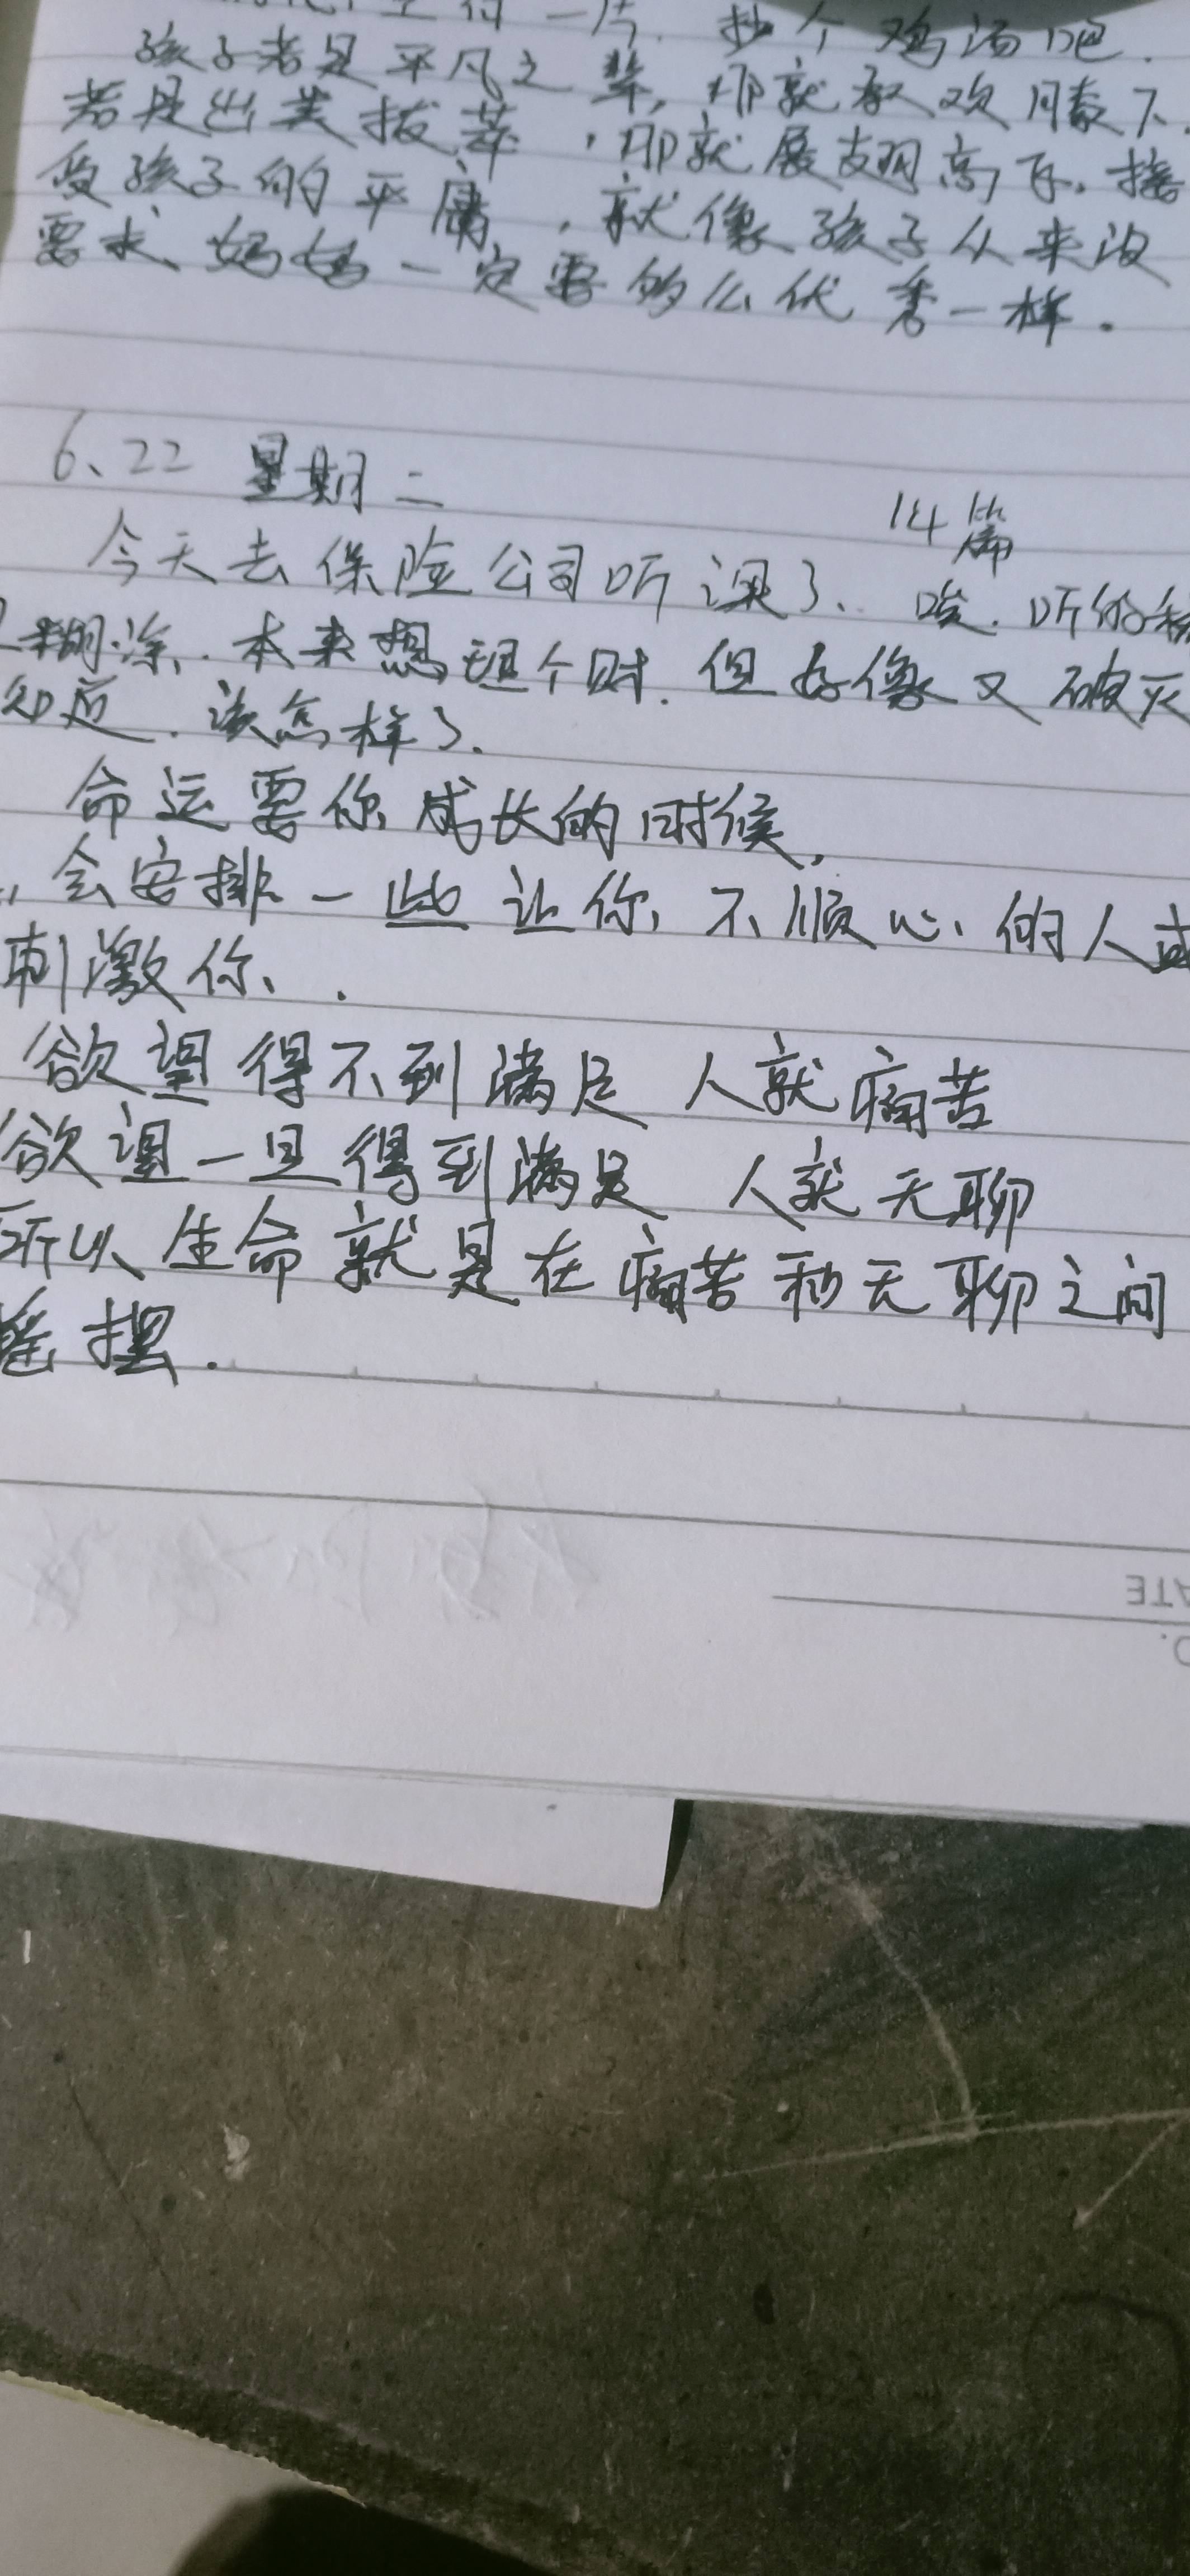 一片. 抄个鸡汤吧.
孩子若是平凡之辈, 那就承欢膝下.
若是出类拔萃, 那就展翅高飞. 接
受孩子的平庸, 就像孩子从来没
要求妈妈一定要多么优秀一样.
6、22 星期二
14篇
今天去保险公司听课了、唉. 听的
糊涂、. 本来想 个时. 但好像又破灭
知道. 该怎样了.
命运要你成长的时候,
会安排一些让你不顺心的人或
刺激你、.
欲望得不到满足 人就痛苦
欲望一旦得到满足 人就无聊
所以生命就是在痛苦和无聊之间
摇摆.
DATE